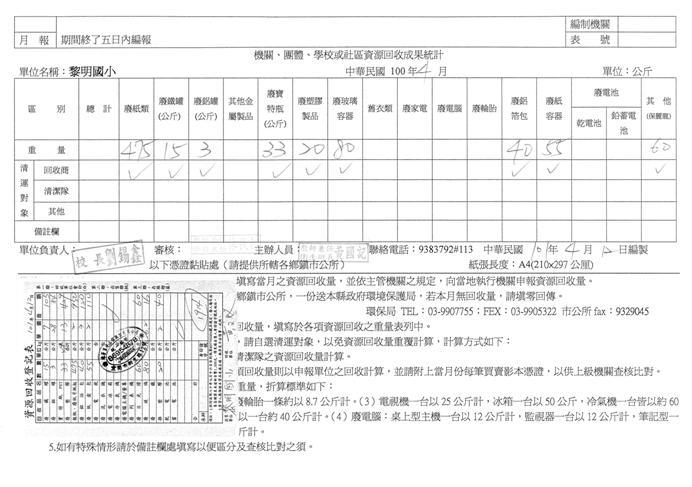 編制機關
月報 期間終了五日內編報 表號
機關、團體、學校或社區資源回收成果統計
單位名稱：黎明國小 中華民國 100年 4 月 單位：公斤
區別 總計 廢紙類 廢鐵罐(公斤) 廢鋁罐(公斤) 其他金屬製品 廢寶特瓶(公斤) 廢塑膠製品 廢玻璃容器 舊衣類 廢家電 廢電腦 廢輪胎 廢鋁箔包 廢紙容器 廢電池 乾電池 鉛蓄電池 其他(保麗龍)
重量 475 15 3 33 20 80 40 55 60
清運對象 回收商 ✓ ✓ ✓ ✓ ✓ ✓ ✓ ✓ ✓
清潔隊
其他
備註欄
單位負責人： 審核： 主辦人員： 聯絡電話：9383792#113 中華民國 年 4 月 日編製
以下憑證黏貼處（請提供所轄各鄉鎮市公所） 紙張長度：A4(210x297 公厘)
填寫當月之資源回收量，並依主管機關之規定，向當地執行機關申報資源回收量。
鄉鎮市公所，一份送本縣政府環境保護局，若本月無回收量，請填零回傳。
環保局 TEL：03-9907755；FEX：03-9905322 市公所 fax：9329045
回收量，填寫於各項資源回收之重量表列中。
，請自選清運對象，以免資源回收量重覆計算，計算方式如下：
清潔隊之資源回收量計算。
資回收量則以申報單位之回收計算，並請附上當月份每筆買賣影本憑證，以供上級機關查核比對。
重量，折算標準如下：
廢輪胎一條約以 8.7 公斤計。（3）電視機一台以 25 公斤計，冰箱一台以 50 公斤，冷氣機一台皆以約 60
以一台約 40 公斤計。（4）廢電腦：桌上型主機一台以 12 公斤計，監視器一台以 12 公斤計，筆記型一
斤計。
資源回收登記表
5.如有特殊情形請於備註欄處填寫以便區分及查核比對之須。